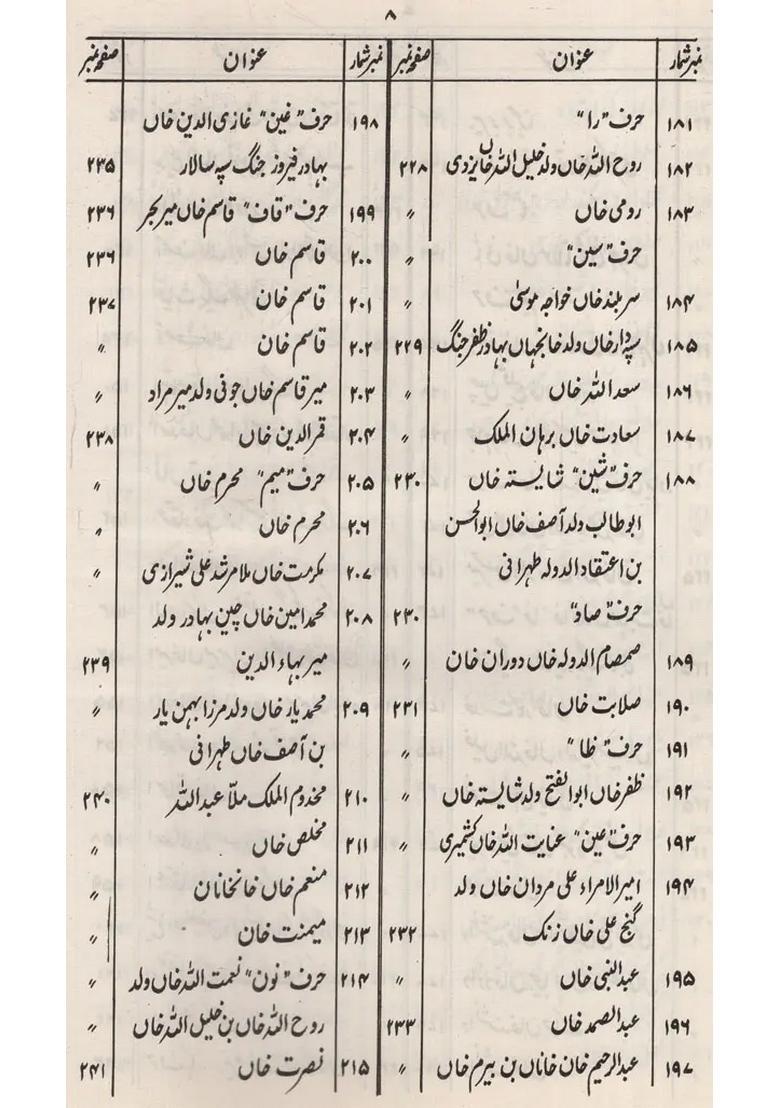 ۸
نمبر شمار عنوان صفحہ نمبر
۱۸۱ حرف "را"
۱۸۲ روح اللہ خاں ولد خلیل اللہ خاں یزدی ۲۲۸
۱۸۳ رومی خاں "
حرف "سین" "
۱۸۴ سربلند خاں خواجہ موسیٰ "
۱۸۵ سپہدار خاں ولد خانجہاں بہادر ظفر جنگ ۲۲۹
۱۸۶ سعد اللہ خاں "
۱۸۷ سعادت خاں برہان الملک "
۱۸۸ حرف "شین" شایستہ خاں ۲۳۰
ابو طالب ولد آصف خاں ابوالحسن
بن اعتقاد الدولہ طہرانی
حرف "صاد" ۲۳۰
۱۸۹ صمصام الدولہ خاں دوران خان "
۱۹۰ صلابت خاں ۲۳۱
۱۹۱ حرف "ظا" "
۱۹۲ ظفر خاں ابوالفتح ولد شایستہ خاں "
۱۹۳ حرف "عین" عنایت اللہ خاں کشمیری "
۱۹۴ امیر الامراء علی مردان خاں ولد
گنج علی خاں زنک ۲۳۲
۱۹۵ عبدالنبی خاں "
۱۹۶ عبدالصمد خاں ۲۳۳
۱۹۷ عبدالرحیم خان خاناں بن بیرم خاں "
نمبر شمار عنوان صفحہ نمبر
۱۹۸ حرف "غین" غازی الدین خاں
بہادر فیروز جنگ سپہ سالار ۲۳۵
۱۹۹ حرف "قاف" قاسم خاں میر بحر ۲۳۶
۲۰۰ قاسم خاں ۲۳۶
۲۰۱ قاسم خان ۲۳۷
۲۰۲ قاسم خان "
۲۰۳ میر قاسم خاں جوفی ولد میر مراد "
۲۰۴ قمر الدین خاں ۲۳۸
۲۰۵ حرف "میم" محرم خاں "
۲۰۶ محرم خاں "
۲۰۷ مکرمت خاں ملا مرشد علی شیرازی "
۲۰۸ محمد امین خاں چین بہادر ولد
میر بہاء الدین ۲۳۹
۲۰۹ محمد یار خاں ولد مرزا بہمن یار "
بن آصف خاں طہرانی
۲۱۰ مخدوم الملک ملّا عبداللہ ۲۴۰
۲۱۱ مخلص خاں "
۲۱۲ منعم خاں خانخانان "
۲۱۳ میمنت خان "
۲۱۴ حرف "نون" نعمت اللہ خاں ولد "
روح اللہ خاں بن خلیل اللہ خاں "
۲۱۵ نصرت خاں ۲۴۱